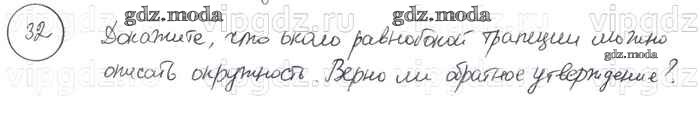 gdz.moda
gdz.moda
32 Докажите, что около равнобокой трапеции можно
gdz.moda
описать окружность. Верно ли обратное утверждение?